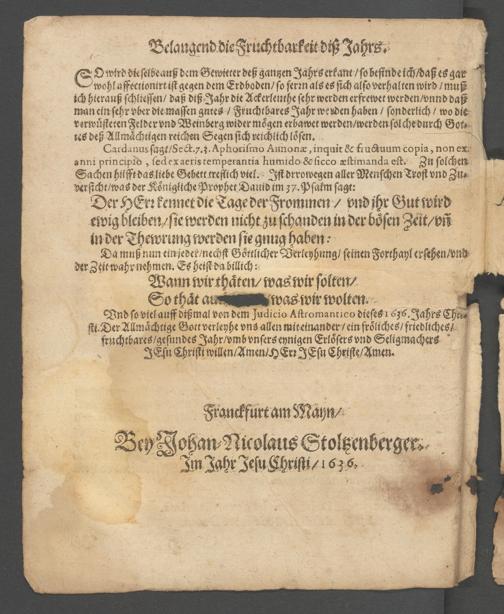 Belangend die Fruchtbarkeit diß Jahrs.
SO wird dieselbe auß dem Gewitter deß gantzen Jahrs erkant / so befinde ich / daß es gar
wohl affectionirt ist gegen dem Erdboden / so fern als es sich also verhalten wird / muß
ich hierauß schliessen / daß diß Jahr die Ackerleuthe sehr werden erfrewet werden / vnnd daß
man ein sehr vber die massen gutes / Fruchtbares Jahr werden haben / sonderlich / wo die
verwüsteten Felder vnd Weinberg wider mögen erbawet werden / werden solche durch Got-
tes deß Allmächtigen reichen Segen sich reichlich lösen.
Cardanus sagt / Sect. 7. 3. Aphorismo Annonæ, inquit & fructuum copia, non ex
anni principio, sed ex aeris temperantia humido & sicco æstimanda est. Zu solchen
Sachen hilfft das liebe Gebett trefflich viel. Ist derowegen aller Menschen Trost vnd Zu-
versicht / was der Königliche Prophet Dauid im 37. Psalm sagt:
Der HErr kennet die Tage der Frommen / vnd ihr Gut wird
ewig bleiben / sie werden nicht zu schanden in der bösen Zeit / vñ
in der Thewrung werden sie gnug haben:
Da muß nun ein jeder / nechst Göttlicher Verleyhung / seinen Forthayl ersehen / vnd
der Zeit wahr nehmen. Es heist da billich:
Wann wir thäten / was wir solten /
So thät / was wir wolten.
Vnd so viel auff dißmal von dem Judicio Astromantico dieses 1636. Jahrs Chri-
sti. Der Allmächtige Gott verleyhe vns allen miteinander / ein fröliches / friedliches /
fruchtbares / gesundes Jahr / vmb vnsers eynigen Erlösers vnd Seligmachers
JEsu Christi willen / Amen / HErr JEsu Christe / Amen.
Franckfurt am Mayn /
Bey Johan-Nicolaus Stoltzenberger.
Im Jahr Jesu Christi / 1636.